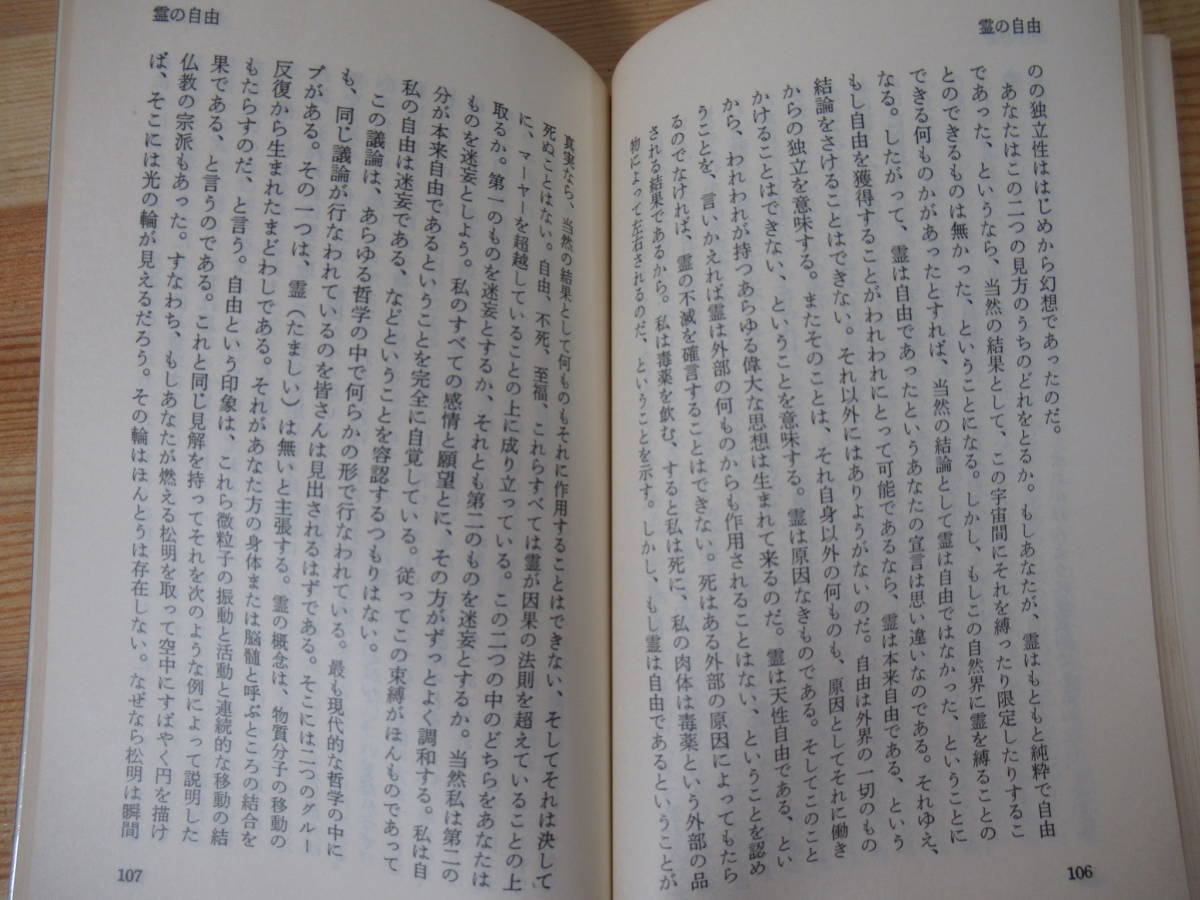 霊の自由
のの独立性ははじめから幻想であったのだ。
あなたはこの二つの見方のうちのどれをとるか。もしあなたが、霊はもともと純粋で自由
であった、というなら、当然の結果として、この宇宙間にそれを縛ったり限定したりするこ
とのできるものは無かった、ということになる。しかし、もしこの自然界に霊を縛ることの
できる何ものかがあったとすれば、当然の結論として霊は自由ではなかった、ということに
なる。したがって、霊は自由であったというあなたの宣言は思い違いなのである。それゆえ、
もし自由を獲得することがわれわれにとって可能であるなら、霊は本来自由である、という
結論をさけることはできない。それ以外にはありようがないのだ。自由は外界の一切のもの
からの独立を意味する。またそのことは、それ自身以外の何ものも、原因としてそれに働き
かけることはできない、ということを意味する。霊は原因なきものである。そしてこのこと
から、われわれが持つあらゆる偉大な思想は生まれて来るのだ。霊は天性自由である、とい
うことを、言いかえれば霊は外部の何ものからも作用されることはない、ということを認め
るのでなければ、霊の不滅を確言することはできない。死はある外部の原因によってもたら
される結果であるから。私は毒薬を飲む、すると私は死に、私の肉体は毒薬という外部の品
物によって左右されるのだ、ということを示す。しかし、もし霊は自由であるということが
106
霊の自由
真実なら、当然の結果として何ものもそれに作用することはできない、そしてそれは決して
死ぬことはない。自由、不死、至福、これらすべては霊が因果の法則を超えていることの上
に、マーヤーを超越していることの上に成り立っている。この二つの中のどちらをあなたは
取るか。第一のものを迷妄とするか、それとも第二のものを迷妄とするか。当然私は第二の
ものを迷妄としよう。私のすべての感情と願望とに、その方がずっとよく調和する。私は自
分が本来自由であるということを完全に自覚している。従ってこの束縛がほんものであって
私の自由は迷妄である、などということを容認するつもりはない。
この議論は、あらゆる哲学の中で何らかの形で行なわれている。最も現代的な哲学の中に
も、同じ議論が行なわれているのを皆さんは見出されるはずである。そこには二つのグルー
プがある。その一つは、霊（たましい）は無いと主張する。霊の概念は、物質分子の移動の
反復から生まれたまどわしである。それがあなた方の身体または脳髄と呼ぶところの結合を
もたらすのだ、と言う。自由という印象は、これら微粒子の振動と活動と連続的な移動の結
果である、と言うのである。これと同じ見解を持ってそれを次のような例によって説明した
仏教の宗派もあった。すなわち、もしあなたが燃える松明を取って空中にすばやく円を描け
ば、そこには光の輪が見えるだろう。その輪はほんとうは存在しない。なぜなら松明は瞬間
107